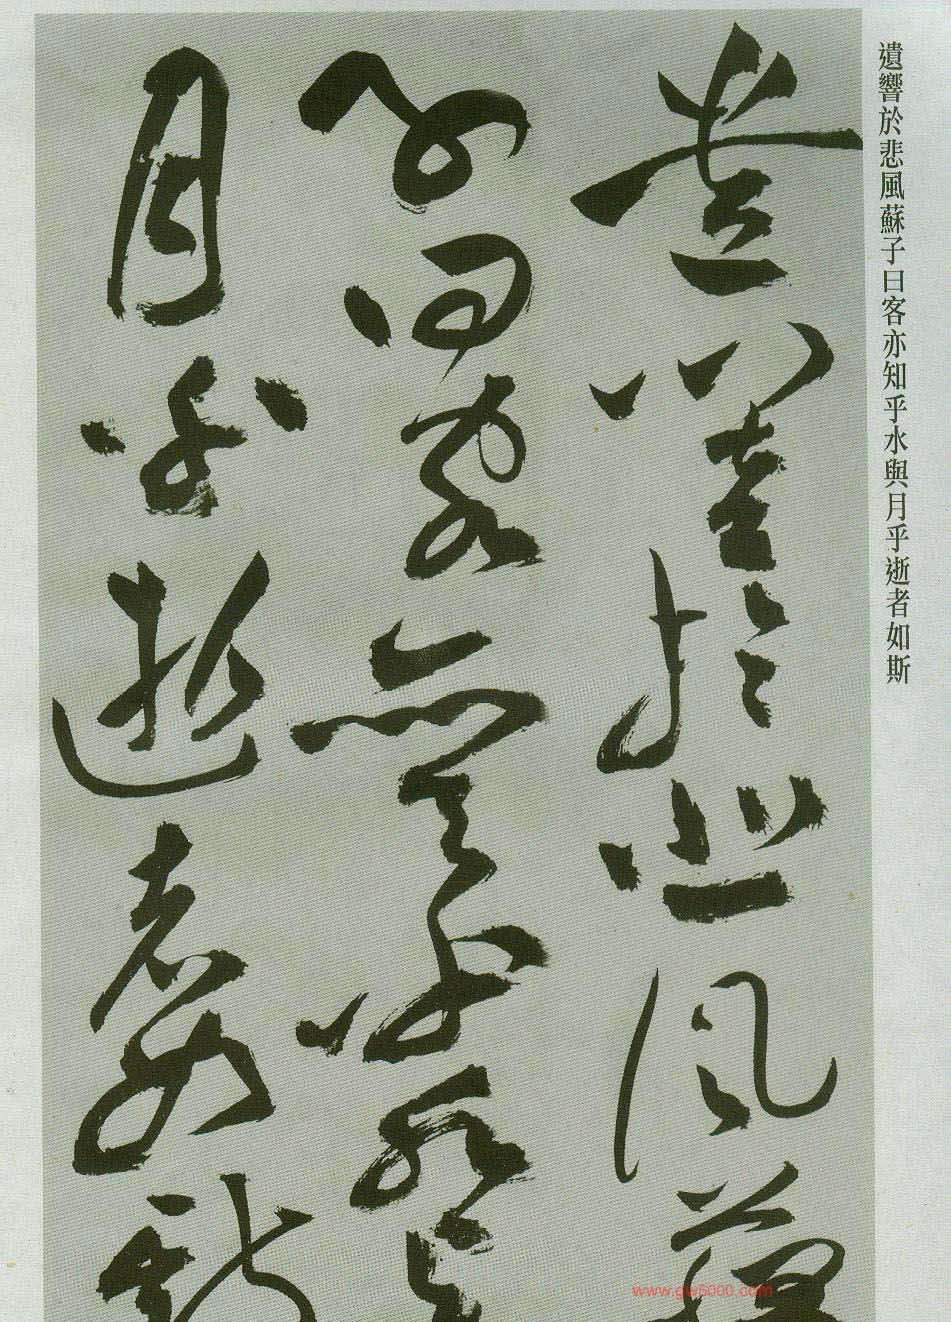 遺響於悲風蘇子曰客亦知乎水與月乎逝者如斯
遺響於悲風蘇
子曰客亦知乎水與
月乎逝者如斯
www.gw5000.com